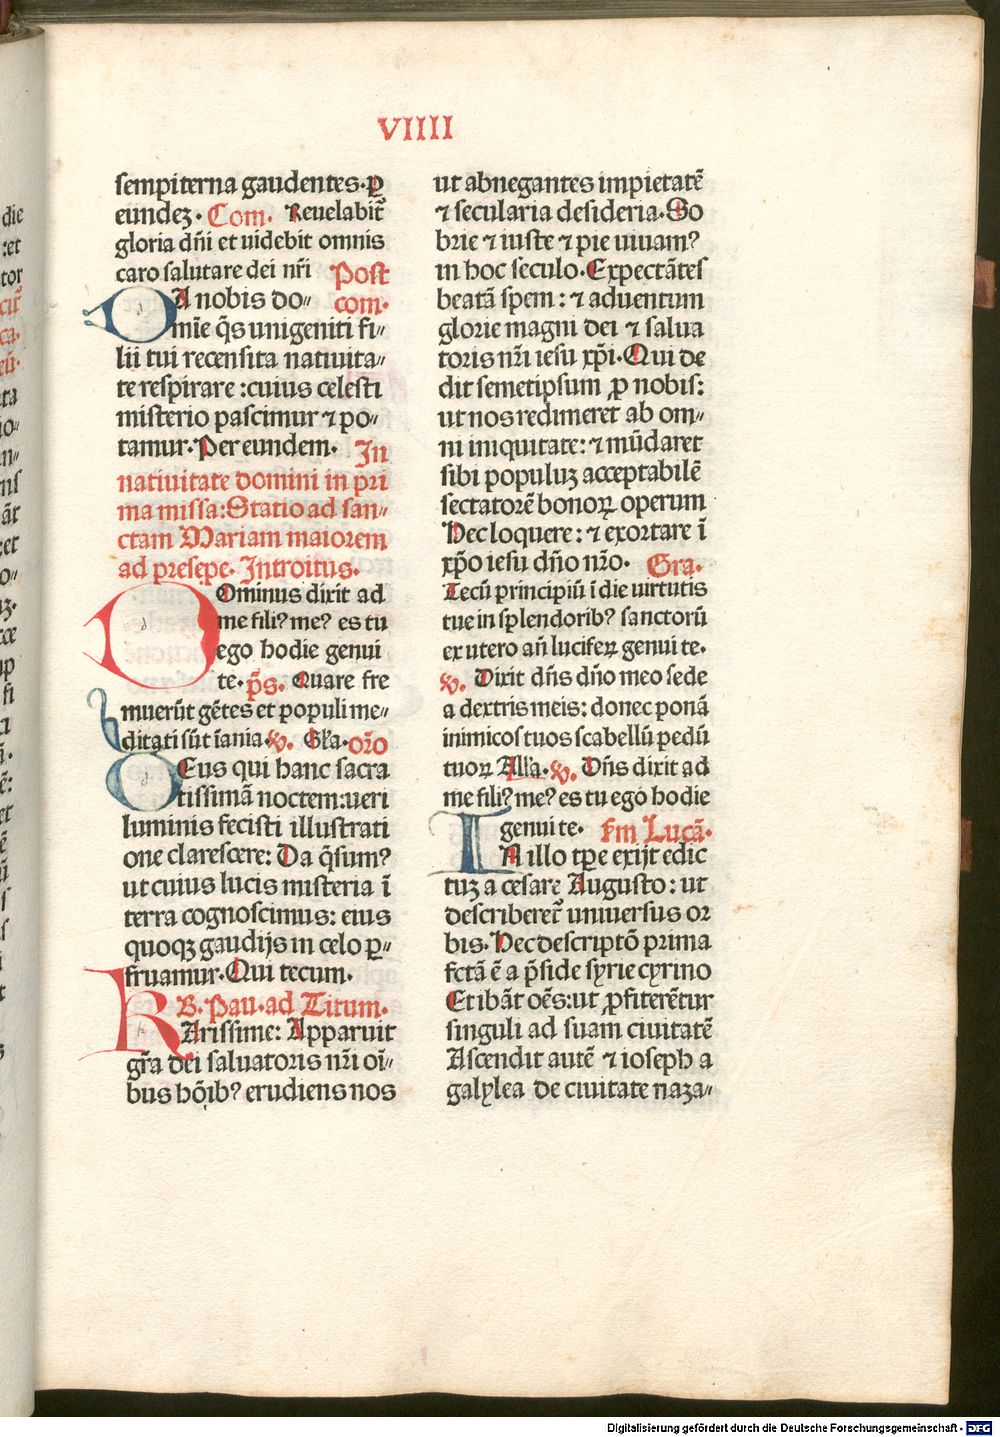 VIIII
sempiterna gaudentes. ꝑ
eundeꝫ. Com. Reuelabit᷑
gloria dn̄i et uidebit omnis
caro salutare dei nr̄i Post
DA nobis do⸗ com.
mīe q̄s unigeniti fi⸗
lii tui recensita natiuita⸗
te respirare :cuius celesti
misterio pascimur ⁊ po⸗
tamur. Per eundem. In
natiuitate domini in pri
ma missa: Statio ad san⸗
ctam Mariam maiorem
ad presepe. Introitus.
DOminus dixit ad
me fili? me? es tu
ego hodie genui
te. p̄s. Quare fre
muerūt gētes et populi me⸗
ditati sūt īania. v. Gl'a. or̄o
DEus qui hanc sacra
tissimā noctem: ueri
luminis fecisti illustrati
one clarescere: Da q̄sum?
ut cuius lucis misteria ī
terra cognoscimus: eius
quoqꝫ gaudijs in celo ꝑ⸗
fruamur. Qui tecum.
B. Pau. ad Titum.
KArissime: Apparuit
gr̄a dei saluatoris nr̄i oī⸗
bus hōib? erudiens nos
ut abnegantes impietatē
⁊ secularia desideria. So
brie ⁊ iuste ⁊ pie uiuam?
in hoc seculo. Expectātes
beatā spem: ⁊ aduentum
glorie magni dei ⁊ salua
toris nr̄i iesu xp̄i. Qui de
dit semetipsum ꝓ nobis:
ut nos redimeret ab om⸗
ni iniquitate: ⁊ mūdaret
sibi populuꝫ acceptabilē
sectatorē bonoꝝ operum
Hec loquere: ⁊ exortare ī
xp̄o iesu dn̄o nr̄o. Gra.
Tecū principiū ī die uirtutis
tue in splendorib? sanctorū
ex utero an̄ luciferꝫ genui te.
v. Dixit dn̄s dn̄o meo sede
a dextris meis: donec ponā
inimicos tuos scabellū pedū
tuoꝝ All'a. v. Dn̄s dixit ad
me fili? me? es tu ego hodie
genui te. s̄m Lucā.
IN illo tp̄e exijt edic
tuꝫ a cesare Augusto: ut
describeret᷑ uniuersus or
bis. Hec descriptō prima
fctā ē a p̄side syrie cyrino
Et ibāt oēs: ut ꝓfiterētur
singuli ad suam ciuitatē
Ascendit autē ⁊ ioseph a
galylea de ciuitate naza⸗
Digitalisierung gefördert durch die Deutsche Forschungsgemeinschaft - DFG